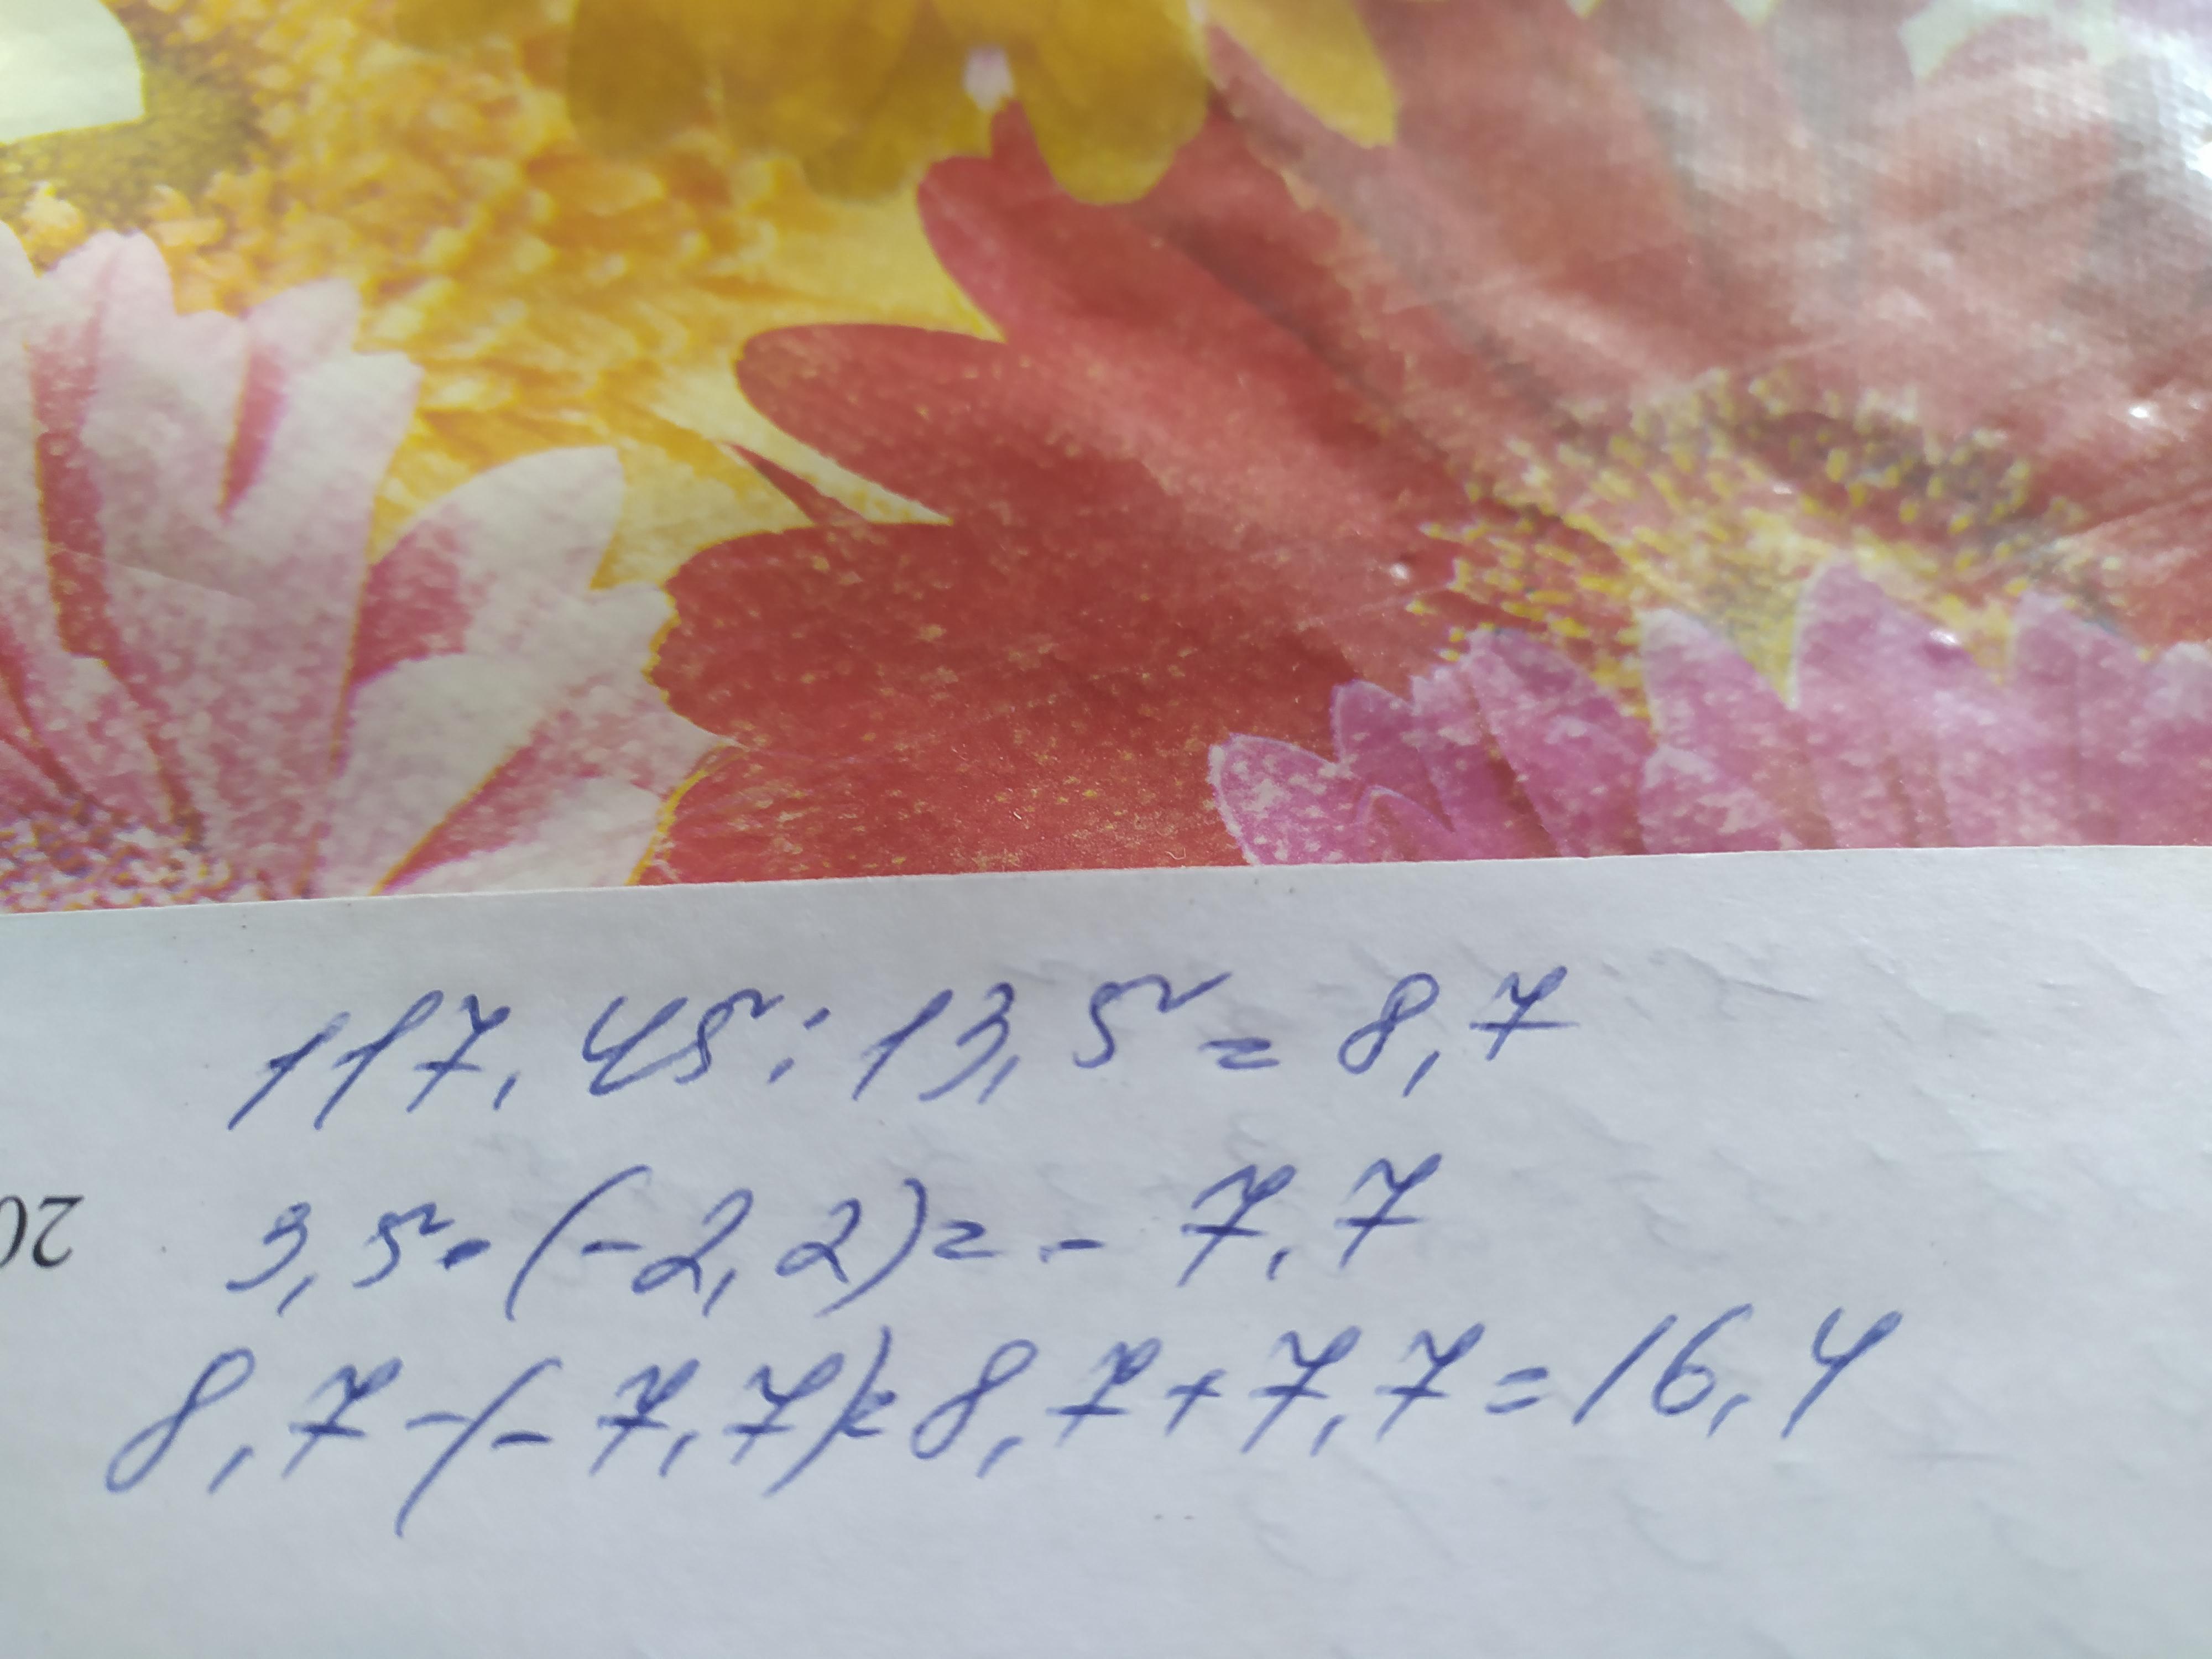 117,45:13,5=8,7
3,5·(-2,2)=-7,7
8,7-(-7,7)=8,7+7,7=16,4
20